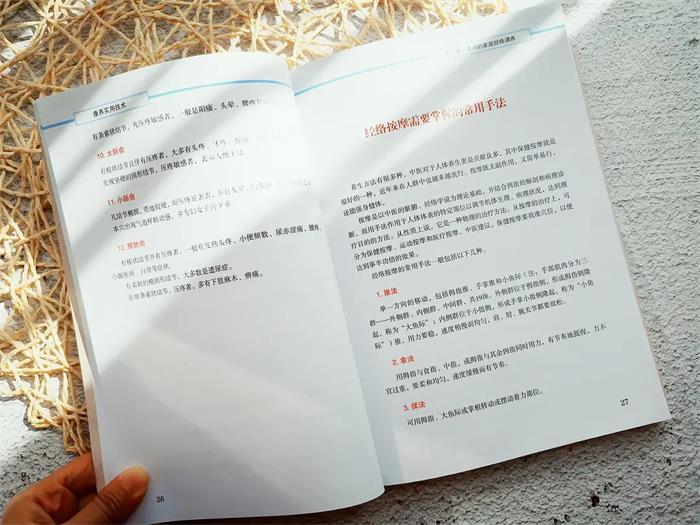 推养实用技术
有条索状结节，凡压疼敏者，一般是阳痿、头晕、腰疼
10. 大肠俞
有梭状结节且伴有压疼者，大多有头疼、牙疼、
发现坚硬的圆形结节，压疼敏感者，表示大便干结
11. 小肠俞
凡结节椭圆，质地较硬，而压疼显著者，多有头晕、
本穴出现气泡样转动感，多为妇女子宫下垂
12. 膀胱俞
有梭状结节并有压疼者，一般有发热头疼、小便频数、尿赤涩痛、腰疼、
小腹胀痛、白带等症状。
有柔软的椭圆形结节，大多数是遗尿症。
有细条索状结节，压疼者，多有下肢麻木、痹痛。
26
的家庭经络调养
经络按摩需要掌握的常用手法
养生方法有很多种，中医对于人体养生更是贡献良多，其中保健按摩就是
很好的一种，近年来在人群中也越来越流行。按摩既无副作用，又简单易行，
还能强身健体。
按摩是以中医的脏腑、经络学说为理论基础，并结合西医的解剖和病理诊
断，而用手法作用于人体体表的特定部位以调节机体生理、病理状况，达到理
疗目的的方法。从性质上说，它是一种物理的治疗方法。从按摩的治疗上，可
分为保健按摩、运动按摩和医疗按摩。中医建议，保健按摩要找准穴位，以便
达到事半功倍的效果。
经络按摩的常用手法一般包括以下几种。
1. 推法
单一方向的移动，包括拇指推、手掌推和小鱼际（注：手部肌肉分为三
群——外侧群、内侧群、中间群，共19块。外侧群位于拇指侧，形成拇指侧隆
起，称为“大鱼际”；内侧群位于小指侧，形成手掌小指侧隆起，称为“小鱼
际”）推，用力要稳，速度稍慢而均匀，肩、肘、腕关节都要放松。
2. 拿法
用拇指与食指、中指，或拇指与其余四指同时用力，有节奏地提捏，力不
宜过重，要柔和均匀，速度缓慢而有节奏。
3. 揉法
可用拇指、大鱼际或掌根转动或摆动着力部位。
27